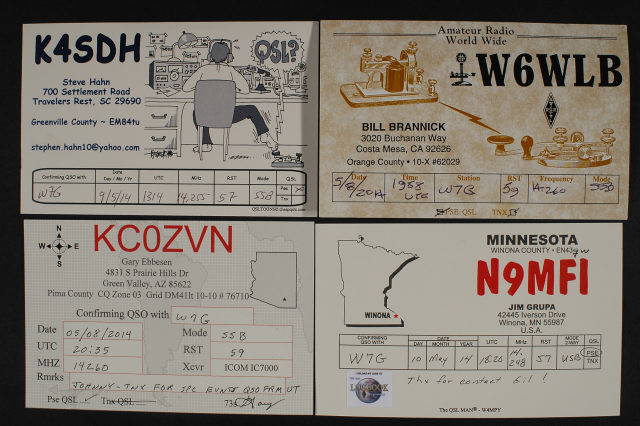 K4SDH
QSL?
Steve Hahn
700 Settlement Road
Travelers Rest, SC 29690
Greenville County ~ EM84tu
stephen.hahn10@yahoo.com
Confirming QSO with
Date
Day / Mo / Yr
UTC
MHz
RST
Mode
QSL
W7G
9/5/14
1314
14,255
57
SSB
Pse
Tnx
Amateur Radio
World Wide
W6WLB
BILL BRANNICK
3020 Buchanan Way
Costa Mesa, CA 92626
Orange County • 10-X #62029
Date
Time
Station
RST
Frequency
Mode
5/8/2014
1958
UTC
W7G
59
14.260
PSE QSL
TNX
N
W
E
S
KC0ZVN
Gary Ebbesen
4831 S Prairie Hills Dr
Green Valley, AZ 85622
Pima County CQ Zone 03 Grid DM41lt 10-10 # 76710
Confirming QSO with W7G
Date 05/08/2014
Mode SSB
UTC 20:35
RST 59
MHZ 14260
Xcvr ICOM IC7000
Rmrks JOHNNY-TNX FOR SPC EVNT QSO FRM UT
Pse QSL
Tnx QSL
73s Gary
WINONA
MINNESOTA
WINONA COUNTY • EN43
N9MFI
JIM GRUPA
42445 Iverson Drive
Winona, MN 55987
U.S.A.
CONFIRMING
QSO WITH
DATE
DAY
MONTH
YEAR
UTC
MHz
RST
MODE
2-WAY
QSL
W7G
10
May
14
1820
14.
248
57
USB
PSE
TNX
Thx for contact Gil!
The QSL MAN® - W4MPY